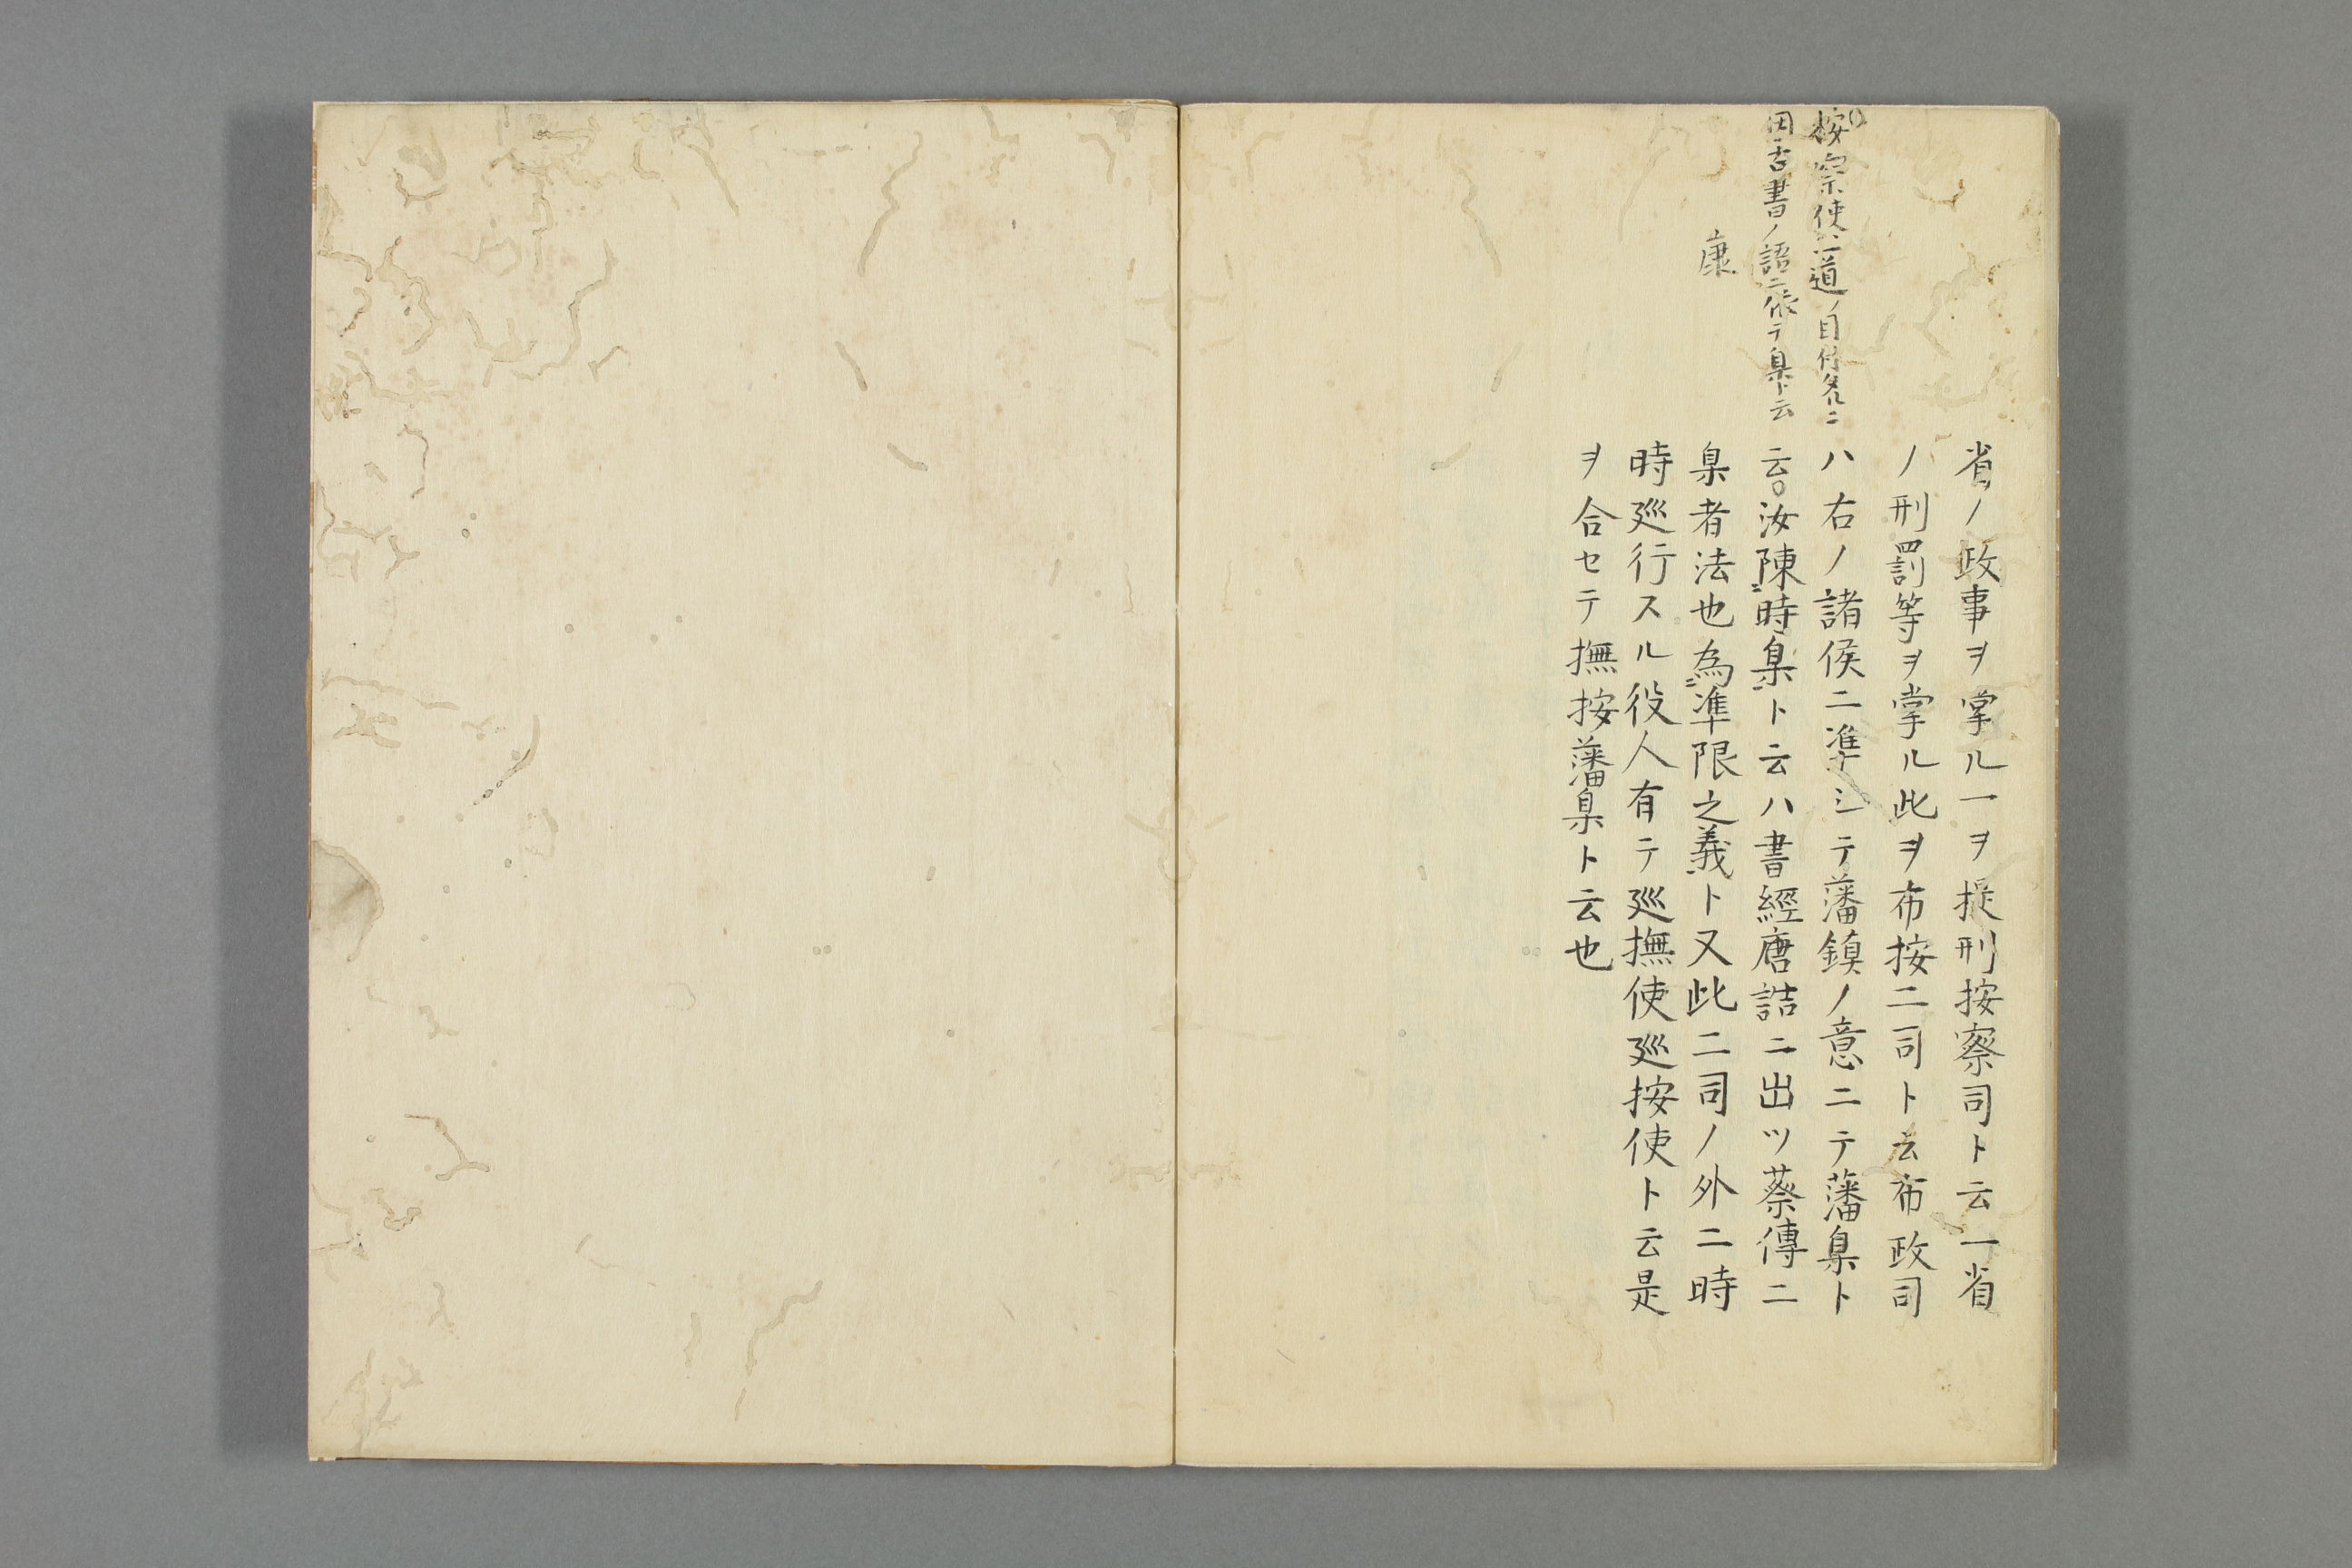 ○按察使ハ一道ノ目付タルニ
因古書ノ語ニ依テ臬ト云
康
省ノ政事ヲ掌ル一ヲ提刑按察司ト云一省
ノ刑罰等ヲ掌ル此ヲ布按二司ト云布政司
ハ右ノ諸侯ニ準シテ藩鎮ノ意ニテ藩臬ト
云○汝陳時臬ト云ハ書經康誥ニ出ツ蔡傳ニ
臬者法也為準限之義ト又此二司ノ外ニ時
時廵行スル役人有テ廵撫使廵按使ト云是
ヲ合セテ撫按藩臬ト云也